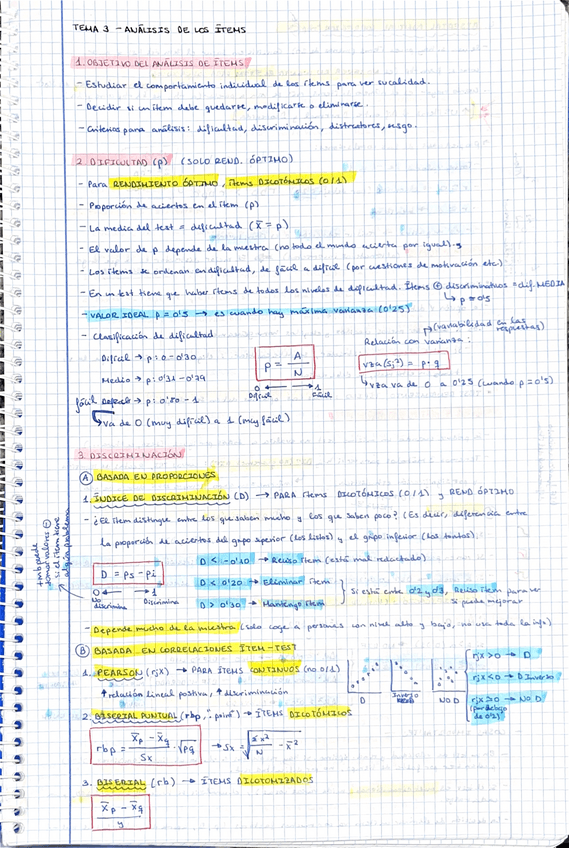 TEMA 3 - ANÁLISIS DE LOS ÍTEMS
1. OBJETIVO DEL ANÁLISIS DE ÍTEMS
- Estudiar el comportamiento individual de los ítems para ver su calidad.
- Decidir si un ítem debe quedarse, modificarse o eliminarse.
- Criterios para análisis: dificultad, discriminación, distractores, sesgo.
2. DIFICULTAD (p) (SOLO REND. ÓPTIMO)
- Para RENDIMIENTO ÓPTIMO, ítems DICOTÓMICOS (0/1)
- Proporción de aciertos en el ítem (p)
- La media del test = dificultad (X̄ = p)
- El valor de p depende de la muestra (no todo el mundo acierta por igual).
- Los ítems se ordenan en dificultad, de fácil a difícil (por cuestiones de motivación etc)
- En un test tiene que haber ítems de todos los niveles de dificultad. Ítems ⊕ discriminativos = dif. MEDIA
↳ p = 0'5
- VALOR IDEAL p = 0'5 → es cuando hay máxima varianza (0'25)
↱ (variabilidad en las respuestas)
- Clasificación de dificultad
Relación con varianza:
Difícil → p: 0 - 0'30
p = A / N
vza (sⱼ²) = p · q
Medio → p: 0'31 - 0'79
0 ← → 1
Difícil Fácil
↳ vza va de 0 a 0'25 (cuando p = 0'5)
fácil → p: 0'80 - 1
↳ va de 0 (muy difícil) a 1 (muy fácil)
3. DISCRIMINACIÓN
Ⓐ BASADA EN PROPORCIONES
1. ÍNDICE DE DISCRIMINACIÓN (D) → PARA ítems DICOTÓMICOS (0/1) y REND. ÓPTIMO
- ¿El ítem distingue entre los que saben mucho y los que saben poco? (Es decir, diferencia entre
la proporción de aciertos del grupo superior (los listos) y el grupo inferior (los tontos).
D = ps - pi
D < -0'10 → Reviso ítem (está mal redactado)
0 ← → 1
No discrimina Discrimina
D < 0'20 → Eliminar ítem
D > 0'30 → Mantengo ítem
Si está entre 0'2 y 0'3, Reviso ítem para ver
si puede mejorar
tmb puede
tomar valores ⊖
si el ítem tiene
algún problema
- Depende mucho de la muestra (solo coge a personas con nivel alto y bajo, no usa toda la info)
Ⓑ BASADA EN CORRELACIONES ÍTEM-TEST
1. PEARSON (rjX) → PARA ÍTEMS CONTINUOS (no 0/1)
↑ relación lineal positiva, ↑ discriminación
D
Inverso
NO D
rjX > 0 → D
rjX < 0 → D Inverso
rjX ≃ 0 → NO D
(por debajo
de 0'2)
2. BISERIAL PUNTUAL (rbp, ) → ÍTEMS DICOTÓMICOS
rbp = (X̄p - X̄q) / Sx · √pq → Sx = √(Σx² / N - X̄²)
3. BISERIAL (rb) → ÍTEMS DICOTOMIZADOS
(X̄p - X̄q) / y